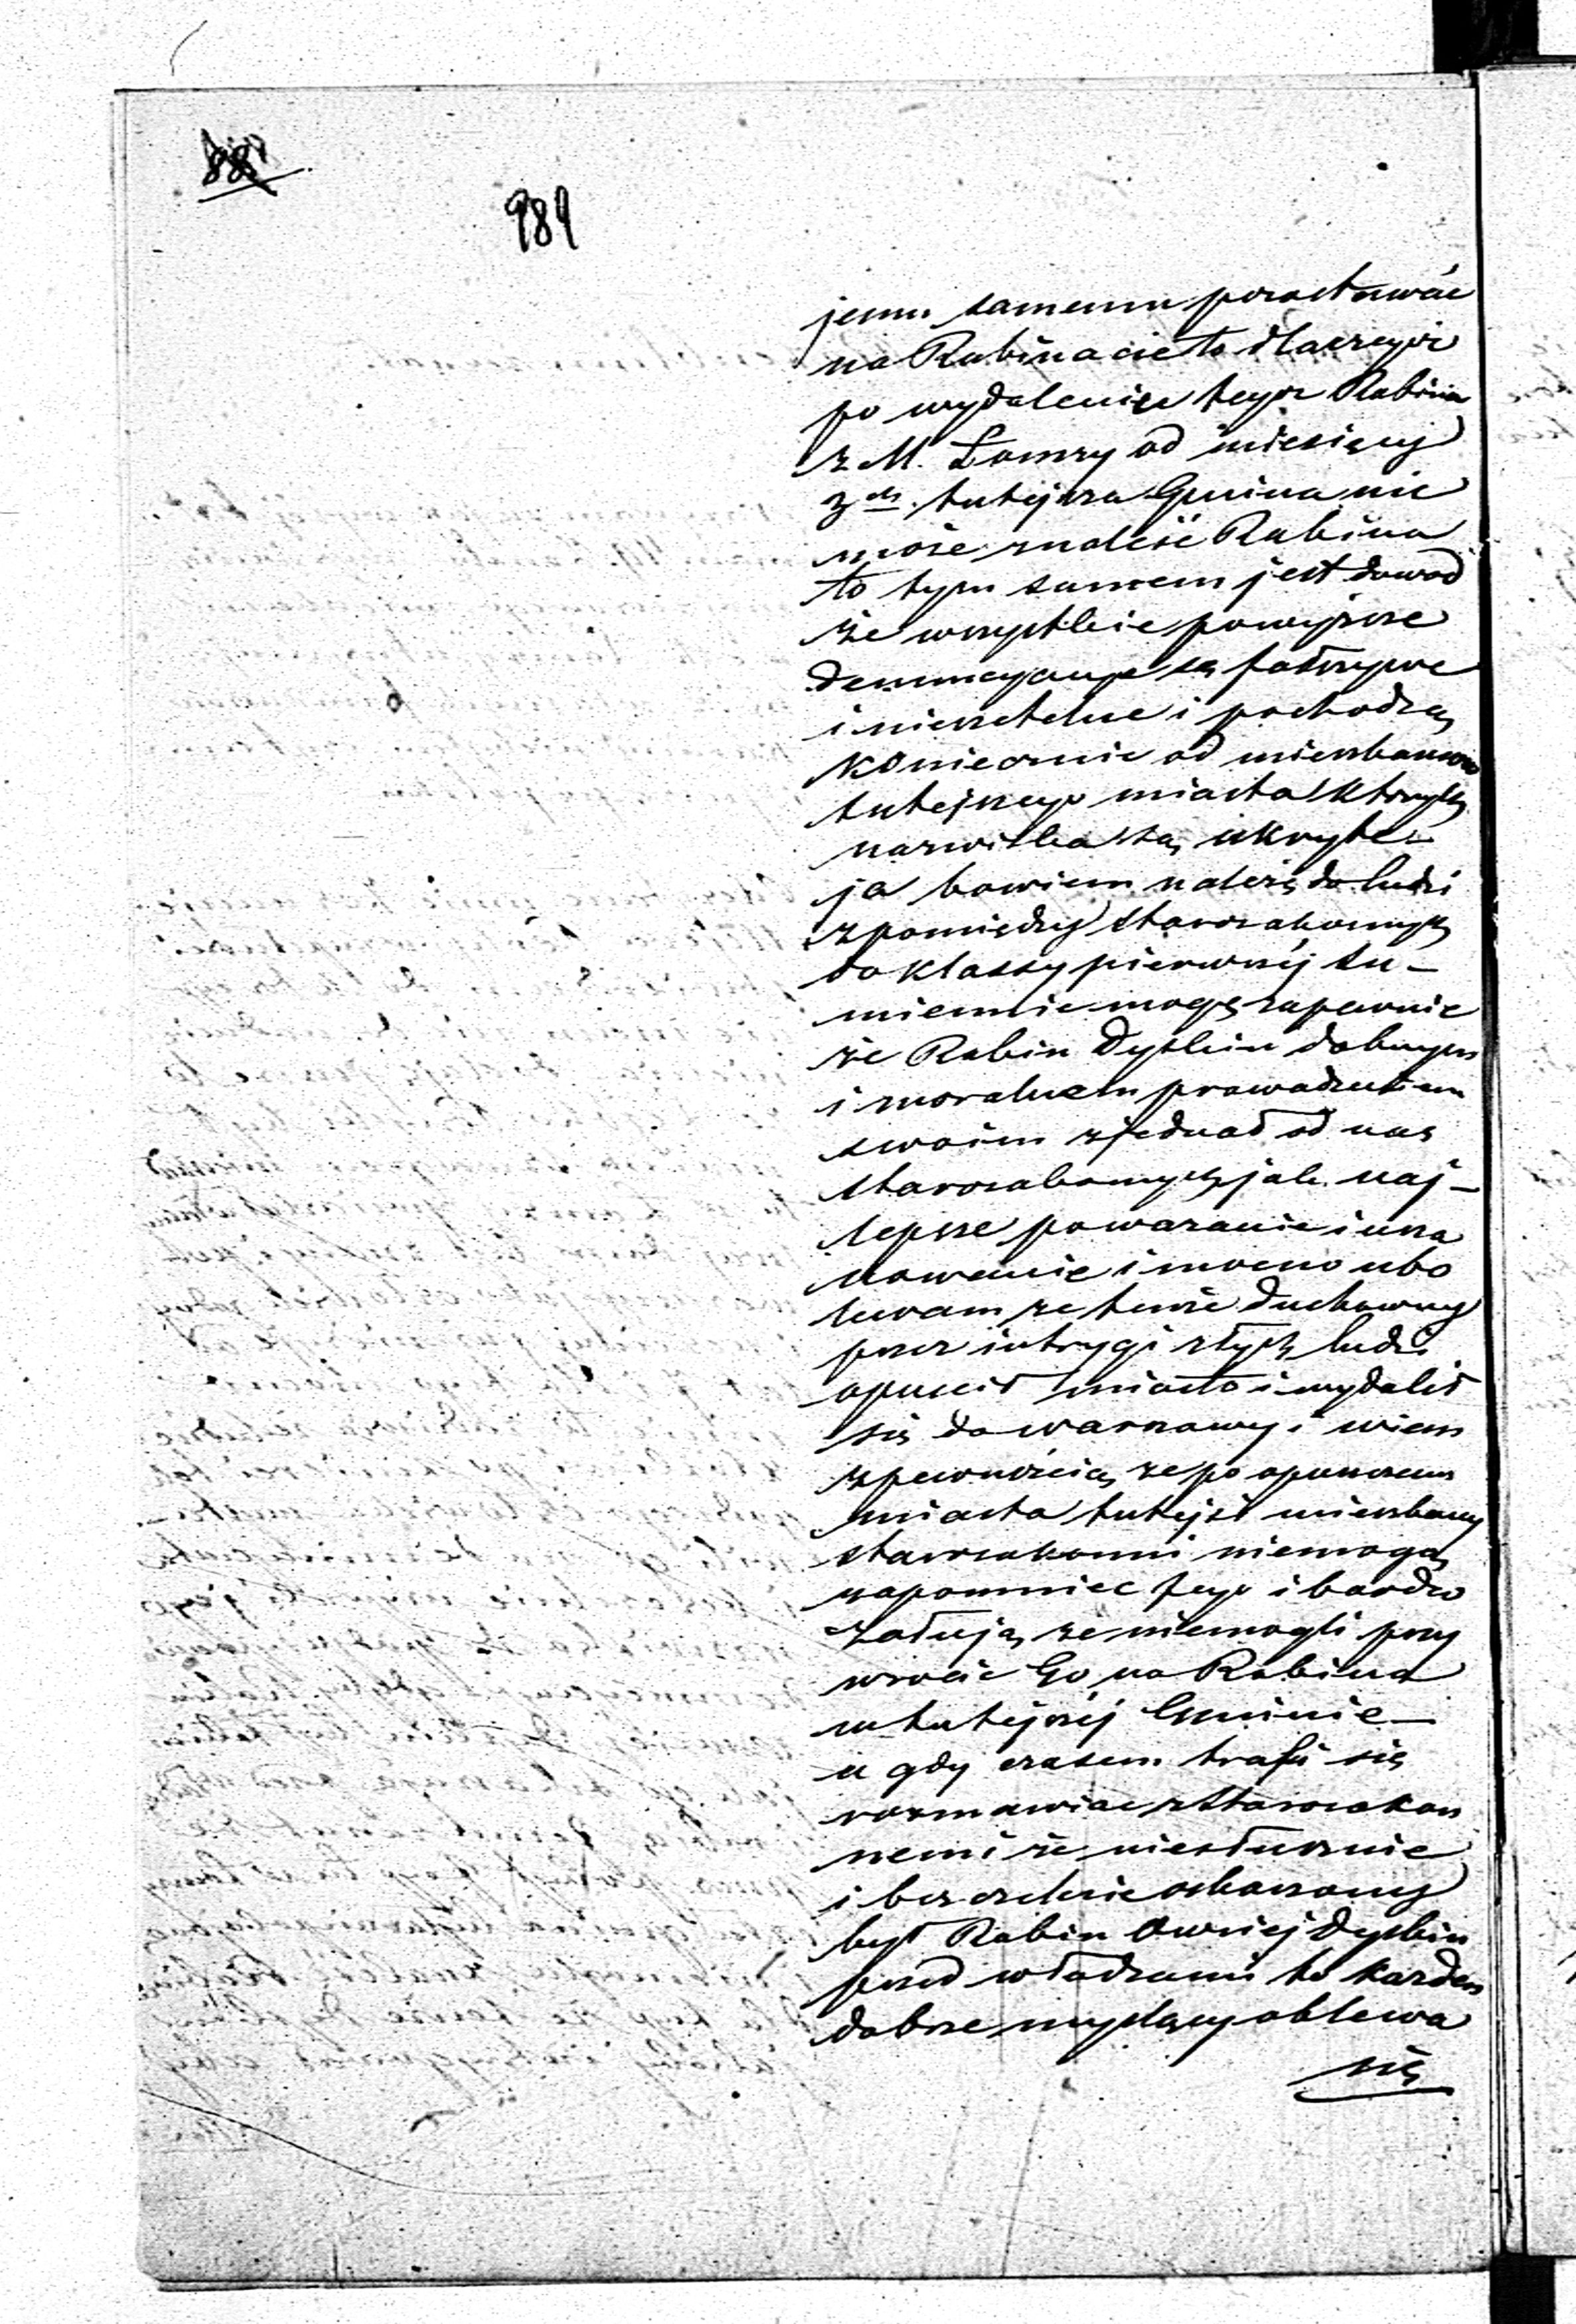 881
984
jemu samemu pozostawać
na Rabinacie to dlaczegoż
po wydaleniu tegoż Rabina
z M. Łomży od miesięcy
3ch tutejsza Gmina nie
może znaleść Rabina
to tym samem jest dowod
że wszystkie powyższe
denuncyacye są fałszywe
i nierzetelne i pochodzą
koniecznie od mieszkancow
tutejszego miasta ktorych
nazwiska są ukryte –
ja bowiem należę do ludzi
z pomiędzy starozakonnych
do klassy pierwszej su–
miennie mogę zapewnic
że Rabin Dyskin dobrym
i moralnem prowadzeniem
swoim zjednał od nas
starozakonnych jak naj–
lepsze poważanie i usza
nowanie i mocno ubo
lewam ze tenże duchowny
przez intrygi złych ludzi
opuscił miasto i wydalił
się do Warszawy i wiem
z pewnością ze po opuszczeniu
miasta tutejsi mieszkancy
starozakonni niemogą
zapomniec tego i bardzo
załują ze niemogli przy
wrocic Go na Rabina
w tutejszej Gminie –
a gdy czasem trafi się
rozmawiac z Starozakon
nemi że niesłusznie
i bezczelnie oskarzony
był Rabin Owsiej Dyskin
przed władzami to kazden
dobrze myslący oblewa
się